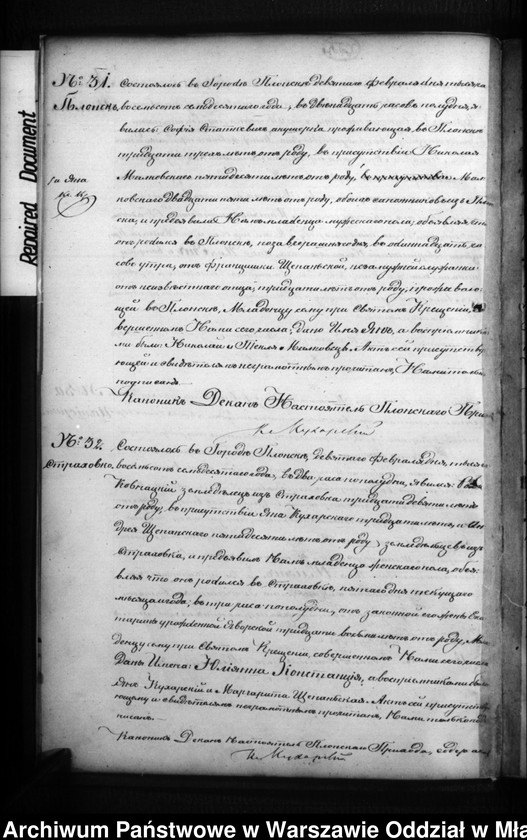 Repaired Document
№ 31. Состоялось въ Городѣ Плонскѣ девятаго Февраля дня тысяча
Плонскъ, восемьсотъ семьдесятаго года, въ двѣнадцать часовъ полудня, я
вилась Софія акушерка проживающая въ Плонскѣ
тридцати трехъ лѣтъ отъ роду, въ присутствіи Николая
Милковскаго пятидесяти лѣтъ отъ роду, Мил
ковскаго двадцати пяти лѣтъ отъ роду, обоихъ изъ Плон
ска, и предъявила Намъ младенца мужескаго пола, объявляя что
онъ родился въ Плонскѣ, позавчерашняго дня, въ одиннадцать ча
совъ утра, отъ Францишки Щепанской, незамужней служанки
отъ неизвѣстнаго отца, тридцати лѣтъ отъ роду, прожива ю
щей въ Плонскѣ. Младенцу сему при Святомъ Крещеніи, со
вершенномъ Нами сего числа, дано Имя Янъ, а воспріемника
ми были: Николай и Текля Милковскіе. Актъ сей присутству
ющей и свидѣтелямъ неграмотнымъ прочитанъ, Нами только
подписанъ.
Каноникъ Деканъ Настоятель Плонскаго
№ 32. Состоялось въ Городѣ Плонскѣ, девятаго Февраля дня, тысяча
Страховко, восемьсотъ семьдесятаго года, въ два часа пополудни, явился
земледѣлецъ изъ Страховка тридцати девяти лѣтъ
отъ роду, въ присутствіи Яна Кухарскаго тридцати лѣтъ, и Ан
дрея Щепанскаго пятидесяти лѣтъ отъ роду, земледѣльцевъ изъ
Страховка, и предъявилъ Намъ младенца женскаго пола, объя
вляя что онъ родился въ Страховкѣ, пятаго дня текущаго
мѣсяца и года, въ три часа пополудни, отъ законной его жены Ека
тарины урожденной Яворской тридцати восьми лѣтъ отъ роду. Мла
денцу сему при Святомъ Крещеніи, совершенномъ Нами сего числа
даны Имена: Юліянна Констанція, а воспріемниками были
Янъ Кухарскій и Маргарита Щепаньская. Актъ сей присутству
ющему и свидѣтелямъ неграмотнымъ прочитанъ, Нами только под
писанъ.
Каноникъ Деканъ Настоятель Плонскаго Прихода
Archiwum Państwowe w Warszawie Oddział w Mła